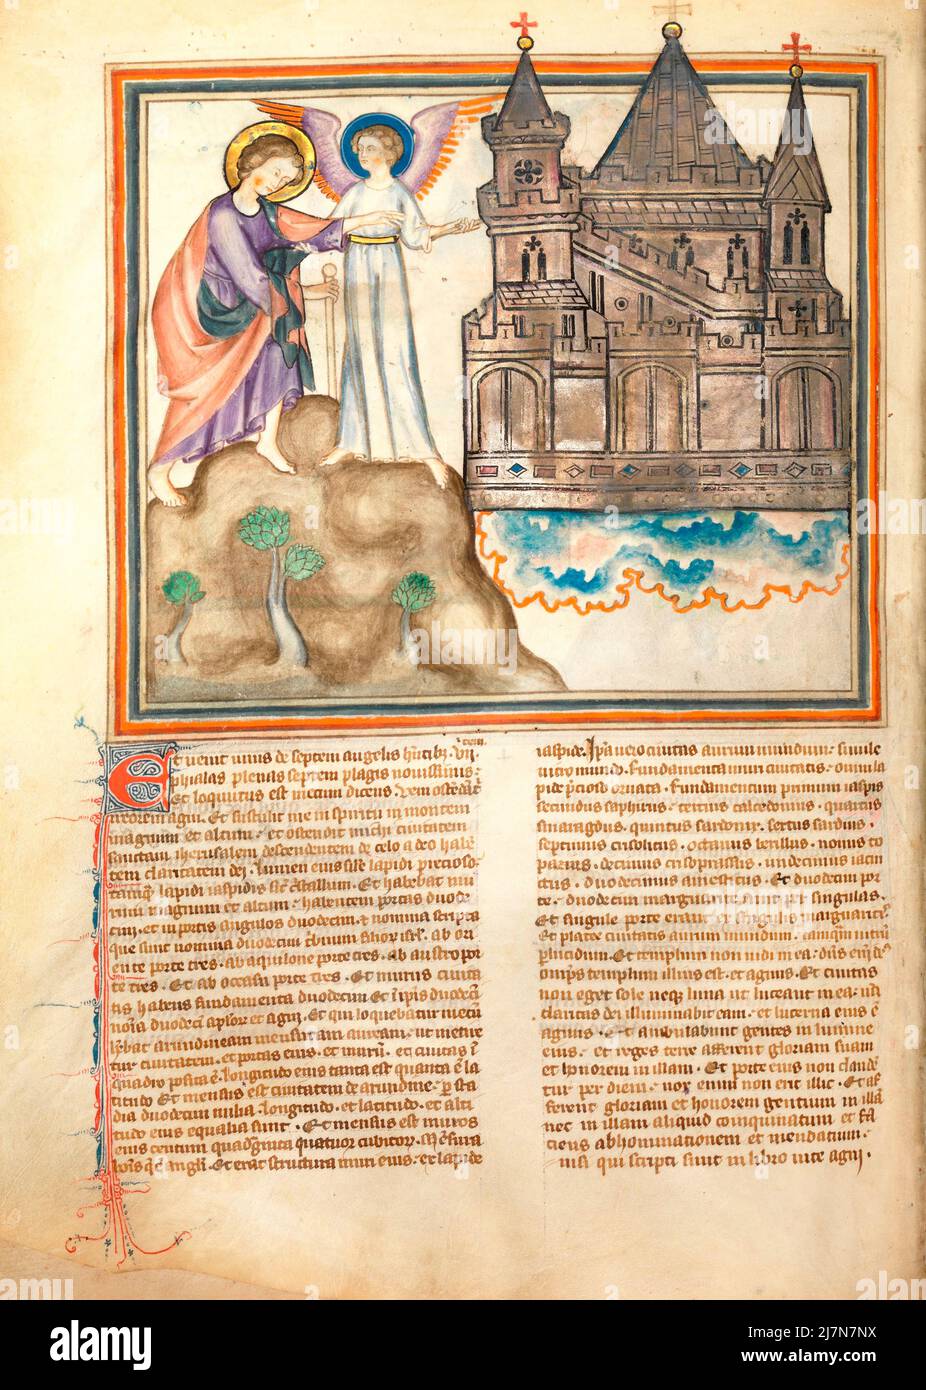 Et venit unus de septem angelis hn̅tibꝫ. vii.
phialas plenas septem plagis novissimis.
Et loquutus est mecum dicens. Veni ostendā t̅
uxorem agni. Et sustulit me in spiritu in montem
magnum et altum. et ostendit michi civitatem
sanctam iherusalem descendentem de celo a deo habē
tem claritatem dei. Lumen eius s̅ile lapidi precioso.
tamq̅. lapidi iaspidis sic̅ c̅stallum. Et habebat mu
rum magnum et altum. habentem portas duode
cim. et in portis angulos duodecim. et nomina scripta
que sunt nomina duodecim t̅buum filior̅ isrl̅. ab ori
ente porte tres. ab aquilone porte tres. ab austro por
te tres. Et ab occasu porte tres. Et murus civita
tis habens fundamenta duodecim. Et i̅ ip̅is duodeci̅
no̅ia duodeci̅ ap̅lor̅ et agni. Et qui loquebatur mecū
h̅ebat arundineam mensuram auream. ut metire
tur civitatem. et portas eius. et murū. et civitas i̅
quadro posita ē. longitudo eius tanta est quanta ē la
titudo. Et mensus est civitatem de arundine. p̅ sta
dia duodecim milia. longitudo. et latitudo. et alti
tudo eius equalia sunt. Et mensus est muros
eius centum quadraginta quatuor cubitor̅. m̅sura
ho̅is q̅ ē angli̅. Et erat structura muri eius. ex lapide
iaspide. Ip̅a vero civitas aurum mundum. simile
vitro mundo. Fundamenta muri civitatis. omni la
pide p̅cioso ornata. Fundamentum primum iaspis
secundus saphirus. tertius calcedonius. quartus
smaragdus. quintus sardonix. sextus sardius.
septimus crisolitus. octavus berillus. nonus to
pazius. decimus crisoprassus. undecimus iacin
ctus. duodecimus ametistus. Et duodecim por
te. duodecim margarite sunt per singulas.
Et singule porte erant ex singulis margaritis.
Et platee civitatis aurum mundum. tamq̅m vitrum
plucidum. Et templum non vidi in ea. dn̅s eni̅ d̅s
omp̅s templum illius est. et agnus. Et civitas
non eget sole neqꝫ luna ut luceant in ea. nā
claritas dei illuminabit eam. et lucerna eius ē
agnus. Et ambulabunt gentes in lumine
eius. et reges terre afferent gloriam suam
et honorem in illam. Et porte eius non claudē
tur per diem. nox enim non erit illic. Et af
ferent gloriam et honorem gentium in illā
nec in illam aliquid coinquinatum et fa
ciens abhominationem et mendatium.
nisi qui scripti sunt in libro vite agni.
alamy
Image ID: 2J7N7NX
www.alamy.com